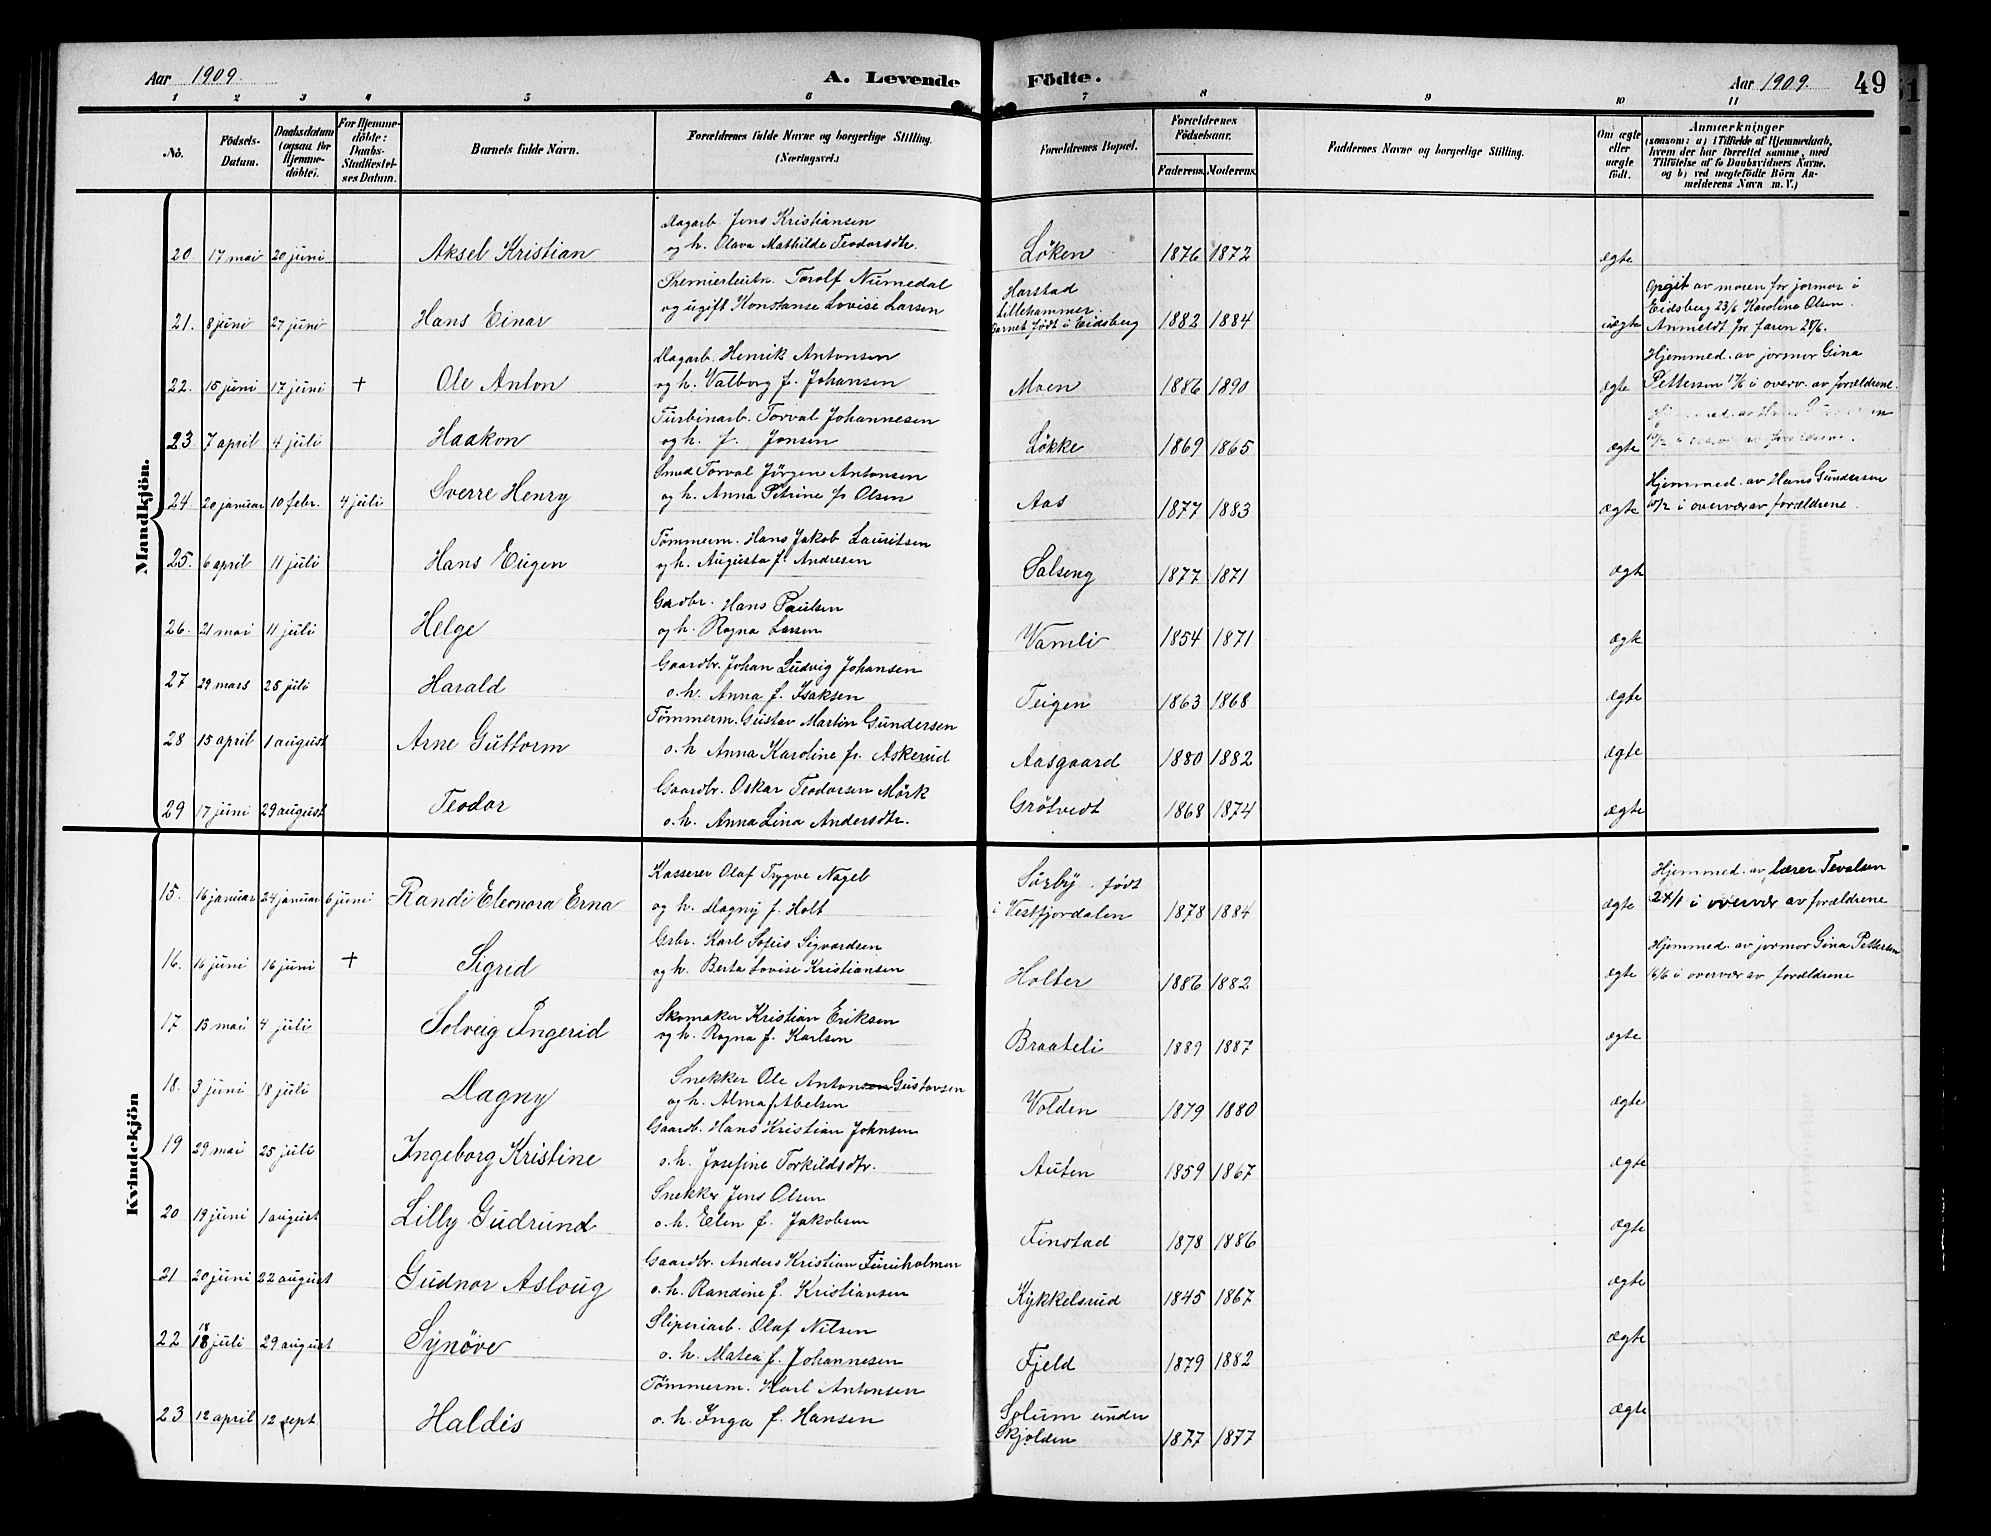 Aar 1909. A. Levende Födte. Aar 1909. 49
1 2 3 4 5 6 7 8 9 10 11
No.
Födsels-Datum.
Daabsdatum (ogsaa for Hjemme-döbte).
For Hjemme-döbte: Daabs-Stadfæstel-ses Datum.
Barnets fulde Navn.
Forældrenes fulde Navne og borgerlige Stilling. (Næringsvei.)
Forældrenes Bopæl.
Forældrenes Födselsaar.
Faderens. Moderens.
Faddernes Navne og borgerlige Stilling.
Om ægte eller uægte födt.
Anmærkninger
(saasom: a) i Tilfælde af Hjemmedaab, hvem der har forrettet samme, med Tilföielse af to Daabsvidners Navne, og b) ved uægtefödte Börn Anmelderens Navn m. V.)
Mandkjön.
Dagarb. Jens Kristiansen
20 17 mai 20 juni Aksel Kristian og h. Olava Mathilde Teodorsdtr. Löken 1876 1872 ægte
Premierleutn. Torolf Numedal
21. 8 juni 27 juni Hans Einar og ugift Konstanse Lovise Larsen
Harstad
Lillehammer.
Barnet född i Eidsberg 1882 1884 uægte
Opgit av moren for jormor i
Eidsberg 23/6 Karolina Olsen.
Anmeldt for faren 28/6.
Dagarb. Henrik Antonsen
22. 15 juni 17 juni + Ole Anton og h. Valborg f. Johansen Moen 1886 1890 ægte
Hjemmed. av jormor Gina
Pettersen 17/6 i overv. av forældrene.
Turbinarb. Torval Johannesen
23. 7 april 4 juli Haakon og h. f. Jonsen Lökke 1869 1865 ægte
Smed Torval Jörgen Antonsen
24 20 januar 10 febr. 4 juli Sverre Henry og h. Anna Petrine f. Olsen Aas 1877 1883 ægte
Hjemmed. av Hans Gundersen
10/2 i overvær av forældrene.
Tömmerm. Hans Jakob Lauritsen
25. 6 april 11 juli Hans Eugen og h. Augusta f. Andresen Salseng 1877 1871 ægte
Gardbr. Hans Paulsen
26. 21 mai 11 juli Helge og h. Ragna Larsen Vamli 1854 1871 ægte
Gaardbr. Johan Ludvig Johansen
27 29 mars 25 juli Harald o. h. Anna f. Isaksen Teigen 1863 1868 ægte
Tömmerm. Gustav Martin Gundersen
28 15 april 1 august Arne Guttorm o. h Anna Karoline f. Askerud Aasgaard 1880 1882 ægte
Gaardbr. Oskar Teodorsen Mörk
29 17 juni 29 august Teodor o. h. Anna Lina Andersdtr. Grötvedt 1868 1874 ægte
Kvindekjön
Kasserer Olaf Trygve Nagel
15. 16 januar 24 januar 6 juni Randi Eleonora Erna og h. Dagny f. Holt
Sörby. född
i Vestfjordalen 1878 1884 ægte
Hjemmed. av lærer Tevalsen
24/1 i overvær av forældrene
Gsbr. Karl Sofus Sigvardsen
16. 16 juni 16 juni + Sigrid og h. Berta Lovise Kristiansen Holter 1886 1882 ægte
Hjemmed. av jormor Gina Pettersen
16/6 i overvær av forældrene
Skomaker Kristian Eriksen
17 13 mai 4 juli Solveig Ingerid og h. Ragna f. Karlsen Braateli 1889 1887 ægte
Snekker Ole Antonsen Gustavsen
18. 3 juni 18 juli Dagny og h. Alma f Abelsen Volden 1879 1880 ægte
Gaardb. Hans Kristian Johnsen
19 29 mai 25 juli Ingeborg Kristine o. h. Josefine Torkildsdtr. Auten 1859 1867 ægte
Snekker Jens Olsen
20 19 juni 1 august Lilly Gudrund o. h. Elen f. Jakobsen Finstad 1878 1886 ægte
Gaardbr. Anders Kristian Furuholmen
21 20 juni 22 august Gudnor Asloug o. h. Randine f. Kristiansen Kykkelsrud 1845 1867 ægte
Sliperiarb. Olaf Nilsen
22 18 juli 29 august Synöve o. h. Matea f. Johannesen Fjeld 1879 1882 ægte
Tömmerm. Karl Antonsen
23 12 april 12 sept Haldis o. h. Inga f. Hansen
Solum under
Skjolden 1877 1877 ægte